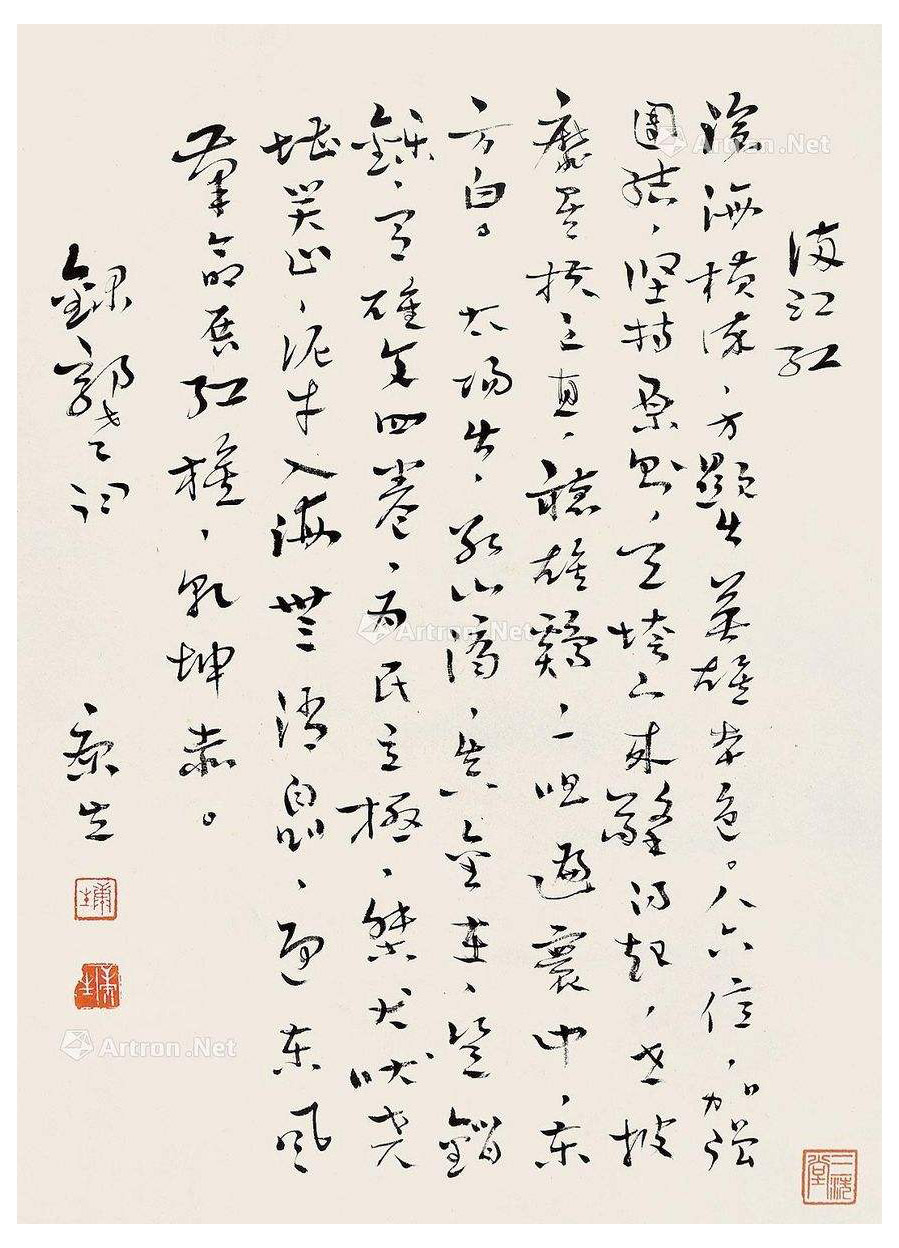 满江红
滄海横流、方顯出英雄本色。人六亿,加强
團结、坚持原则,天垮下来擎得起,世披
靡矣扶之直、聽雄鷄、一唱遍寰中、东
方白。太陽出、冰山滴、真金在、豈銷
鑠、有雄文四卷、为民立極、桀犬吠尧
堪笑止、泥牛入海無消息、迎东风
革命展红旗、乾坤赤。
錄郭老词
康生
康生
康生
三洗堂
Artron.Net
Artron.Net
Artron.Net